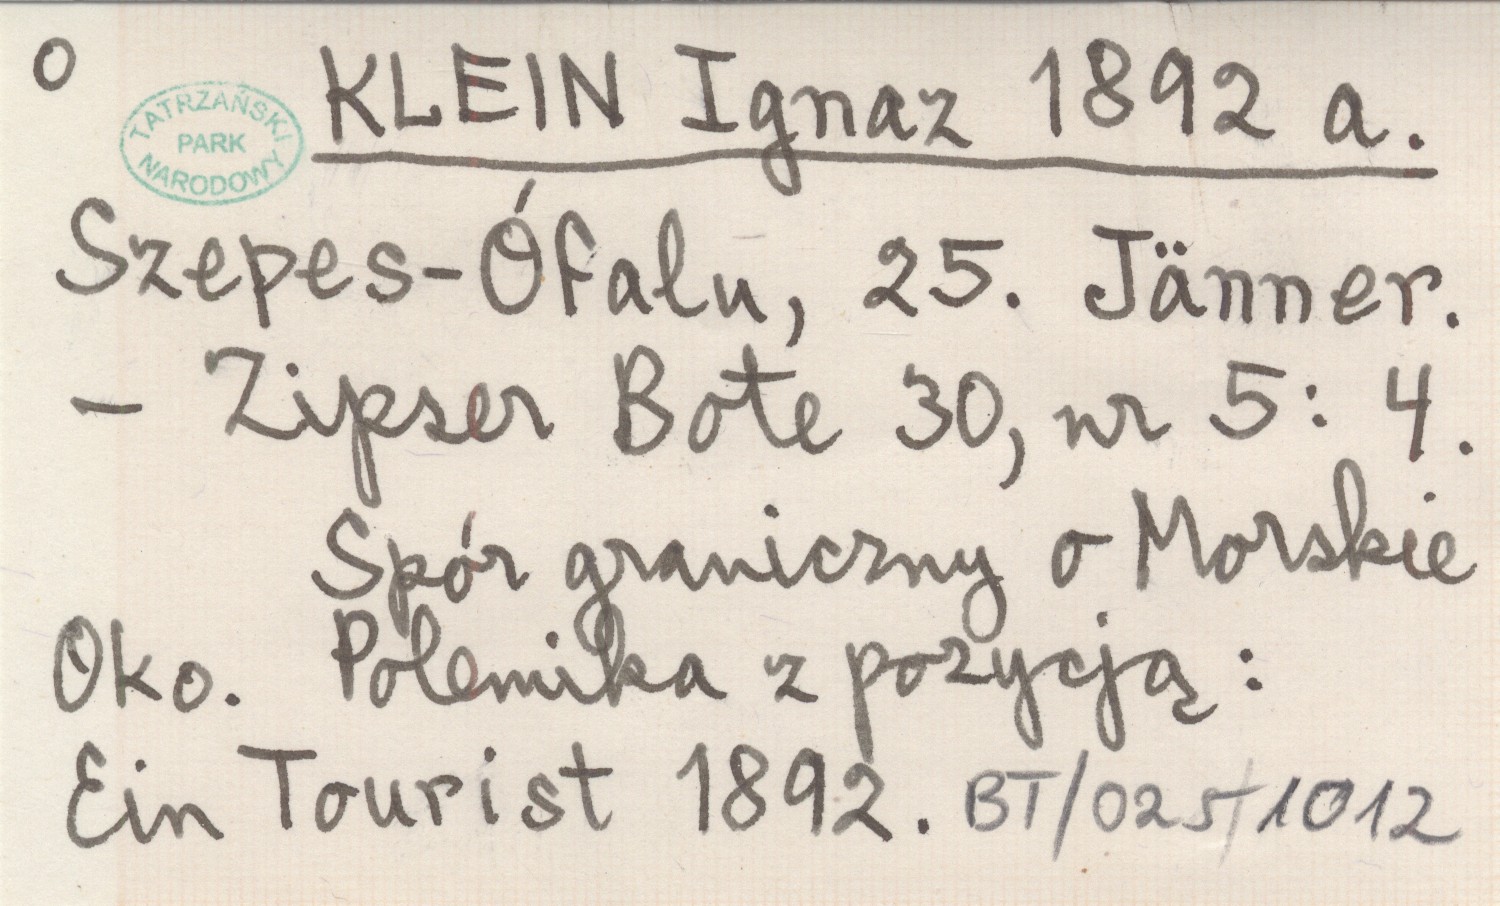 o KLEIN Ignaz 1892 a.
TATRZAŃSKI
PARK
NARODOWY
Szepes-Ófalu, 25. Jänner.
– Zipser Bote 30, nr 5: 4.
Spór graniczny o Morskie
Oko. Polemika z pozycją:
Ein Tourist 1892. BT/025/1012